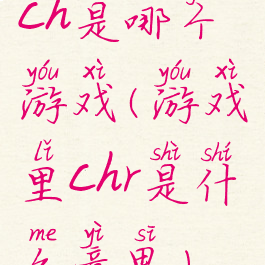 ch是哪个
yóu xì yóu xì
游戏(游戏
lǐ shì shí
里chr是什
me yì sī
么意思)